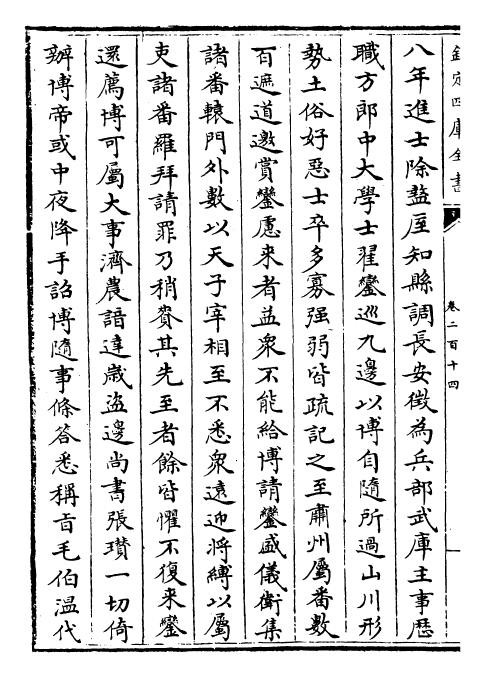 欽定四庫全書
卷二百十四
八年進士除盩厔知縣調長安徵為兵部武庫主事歷
職方郎中大學士翟鑾巡九邊以博自隨所過山川形
勢土俗好惡士卒多寡强弱皆疏記之至肅州屬番數
百遮道邀賞鑾慮来者益衆不能給博請鑾盛儀衛集
諸番轅門外數以天子宰相至不悉衆遠迎將縛以屬
吏諸番羅拜請罪乃稍賚其先至者餘皆懼不復来鑾
還薦博可屬大事濟農諳達歳盗邊尚書張瓚一切倚
辦博帝或中夜降手詔博隨事條答悉稱㫖毛伯溫代